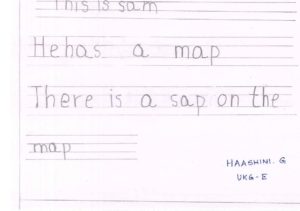 This is sam
He has a map
There is a sap on the
map
HAASHINI. G
UKG-E